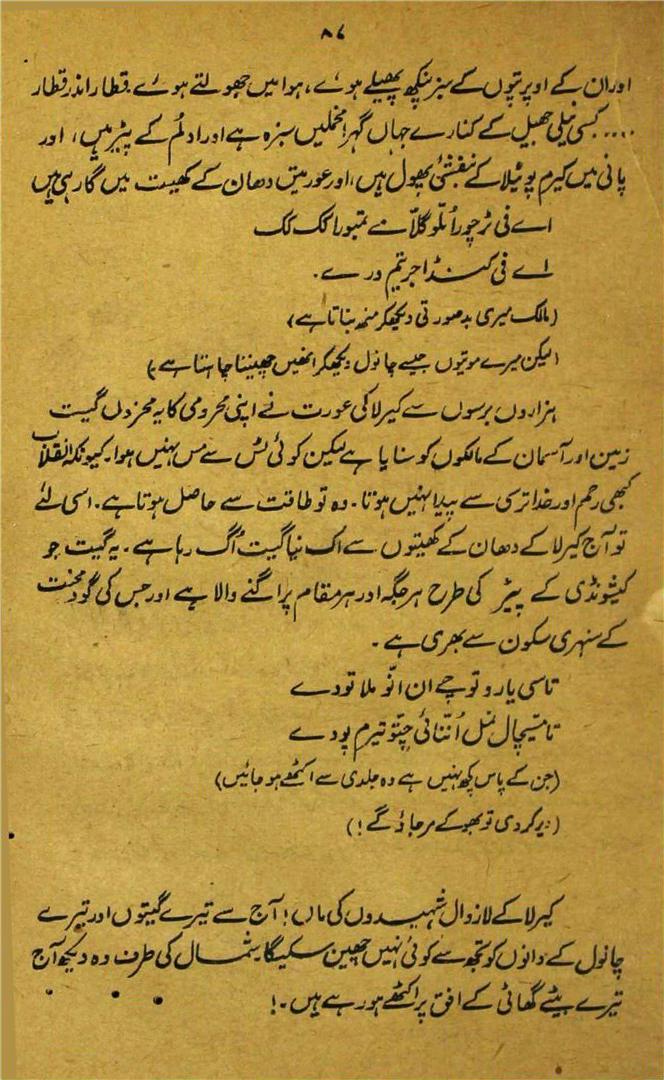 ۸۷
اور ان کے اوپر پتوں کے سبز پنکھ پھیلے ہوئے، ہوا میں جھولتے ہوئے۔ قطار اندر قطار
.... کسی نیلی جھیل کے کنارے جہاں گہرا مخملیں سبزہ ہے اور ادلم کے پیڑ ہیں، اور
پانی میں کیرم پوئیلا کے بنفشئی پھول ہیں، اور عورتیں دھان کے کھیت میں گا رہی ہیں
اے فی ٹرچورا تلو گلا تمبورا لک لک
اے فی کنڈا جریتم ورے۔
(مالک میری بدصورتی دیکھکر منھ بناتا ہے)
(لیکن میرے موتیوں جیسے چانول دیکھکر انھیں چھیننا چاہتا ہے)
ہزاروں برسوں سے کیرلا کی عورت نے اپنی محرومی کا یہ محزوں گیت
زمین اور آسمان کے مالکوں کو سنایا ہے لیکن کوئی ٹس سے مس نہیں ہوا۔ کیونکہ انقلاب
کبھی رحم اور خدا ترسی سے پیدا نہیں ہوتا۔ وہ تو طاقت سے حاصل ہوتا ہے۔ اسی لئے
تو آج کیرلا کے دھان کے کھیتوں سے اک نیا گیت اُگ رہا ہے۔ یہ گیت جو
کیثونڈی کے پیڑ کی طرح ہر جگہ اور ہر مقام پر اگنے والا ہے اور جس کی گود محنت
کے سنہری سکون سے بھری ہے۔
تاسی یارو توچے ان انّو ملا تودے
تامیچال مُنل اُنّنائی چتّو تیرم پودے
(جن کے پاس کچھ نہیں ہے وہ جلدی سے اکٹھے ہو جائیں)
(دیر کر دی تو بھوکے مر جاؤ گے!)
کیرلا کے لازوال شہیدوں کی ماں! آج سے تیرے گیتوں اور تیرے
چانول کے دانوں کو تجھ سے کوئی نہیں چھین سکیگا۔ شمال کی طرف وہ دیکھ آج
تیرے بیٹے گھاٹی کے افق پر اکٹھے ہو رہے ہیں۔!